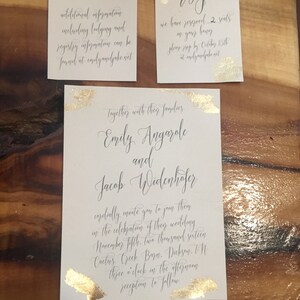 additional information
including lodging and
registry information can be
found at
we have reserved 2 seats
in your honor
please rsvp by October
at
Together with their families
Emily Angarole
and
Jacob Widenhofer
cordially invite you to join them
in the celebration of their wedding
November fifth two thousand sixteen
Cactus Creek Barn, TN
three o'clock in the afternoon
reception to follow